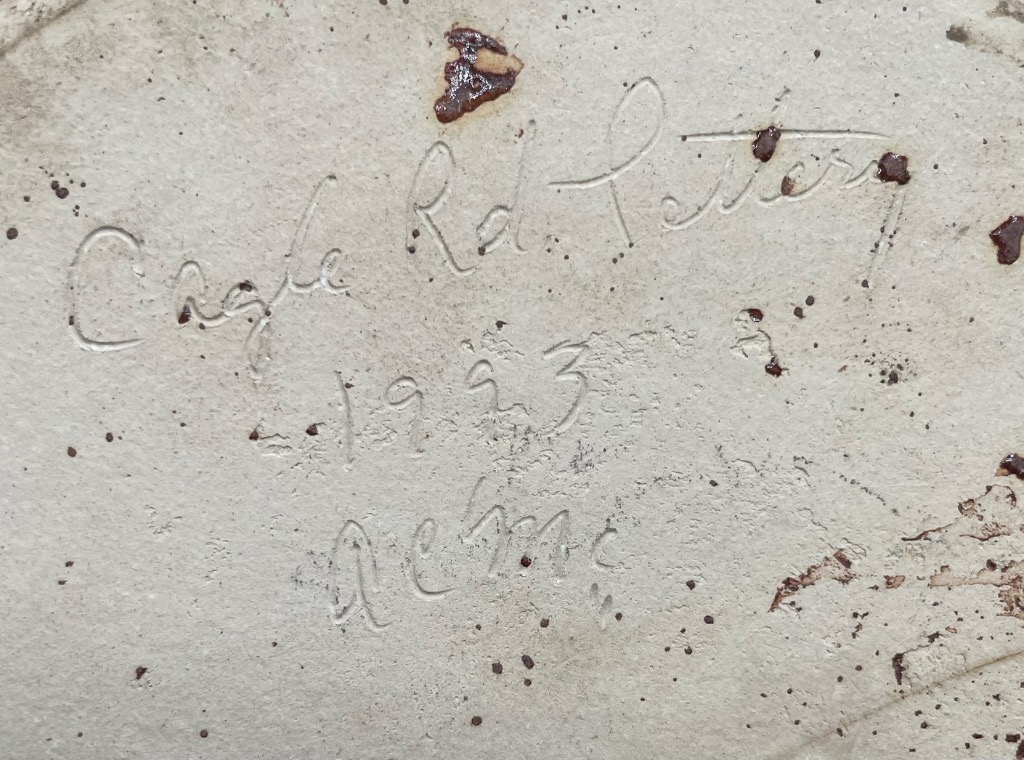 Cagle Rd. Pottery
1993